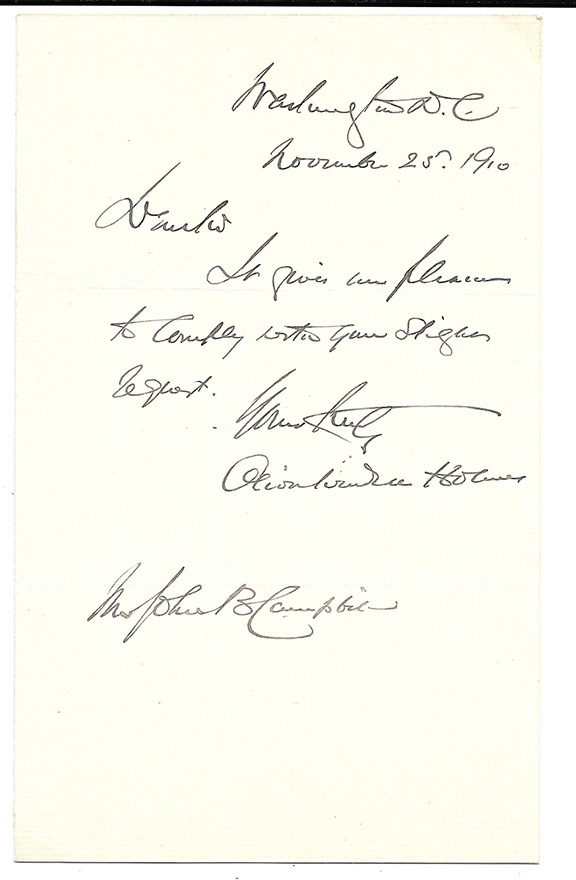 Washington D.C.
November 25. 1910
Dear Sir
It gives me pleasure
to comply with your
request.
Yours truly
Oliver Wendell Holmes
Mr John B Campbell